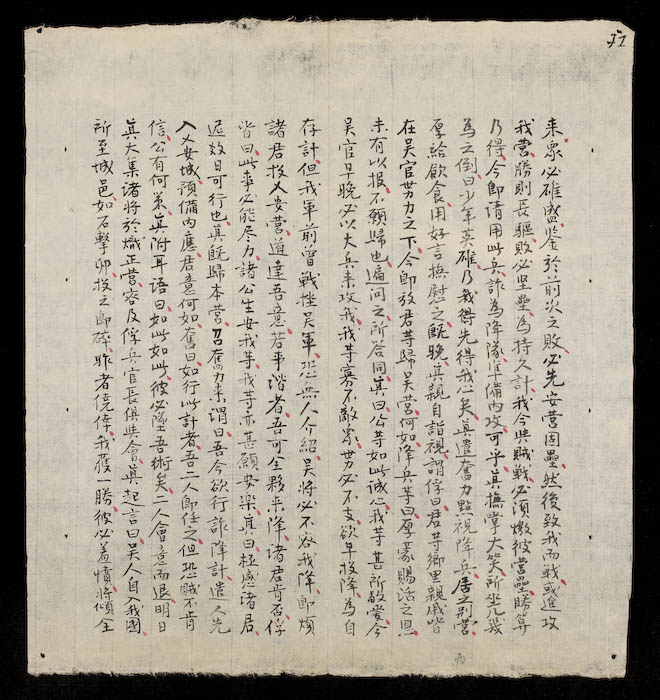 71
来眾必雄盛鉴於前次之敗必先安营固壘然後致我而戰或進攻
我营勝則長驅敗必坚壘為持久計我今與賊戰必須燉彼营壘勝算
乃得今即请用此兵詐為降隊準備內攻可乎真撫掌大笑所坐几幾
為之倒曰少年英雄乃我得先得我心矣真遣奮力點視降兵居之别营
厚給飲食用好言撫慰之既晚真親自詣視謂俘曰君等鄉里親戚皆
在吴官势力之下今即放君等歸吴营何如降兵等曰厚蒙賜活之恩
未有以报不願歸也遍问之所答同真曰公等如此诚心我等甚所敬爱今
吴官早晚必以大兵来攻我我等寡不敵眾势必不支欲早投降為自
存計但我軍前曾戰挫吴軍恐無人介紹吴将必不容我降即煩
諸君投乂安营道達吾意若事諧者吾可全夥来降诸君肯否俘
皆曰此事必能尽力諸公生安我等我等亦甚願安樂真曰極感诸君
迟效日可行也真既歸本营召奮力来谓曰吾今欲行詐降計遣人先
入乂安城預備內應君意何如奮曰如行此計者吾二人即任之但恐贼不肯
信公有何策真附耳语曰如此如此彼必墮吾術矣二人會意而退明日
真大集诸将於熾正营容及俘兵官長俱與會真起言曰吴人自入我國
所至城邑如石擊卵投之即碎昨者僥倖我獲一勝彼必羞憤将傾全